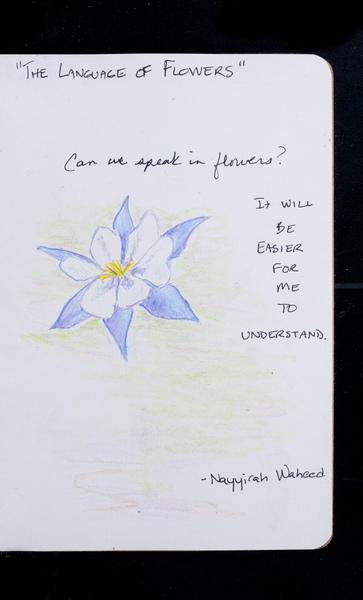 "THE LANGUAGE OF FLOWERS"
Can we speak in flowers?
IT WILL
BE
EASIER
FOR
ME
TO
UNDERSTAND.
-Nayyirah Waheed